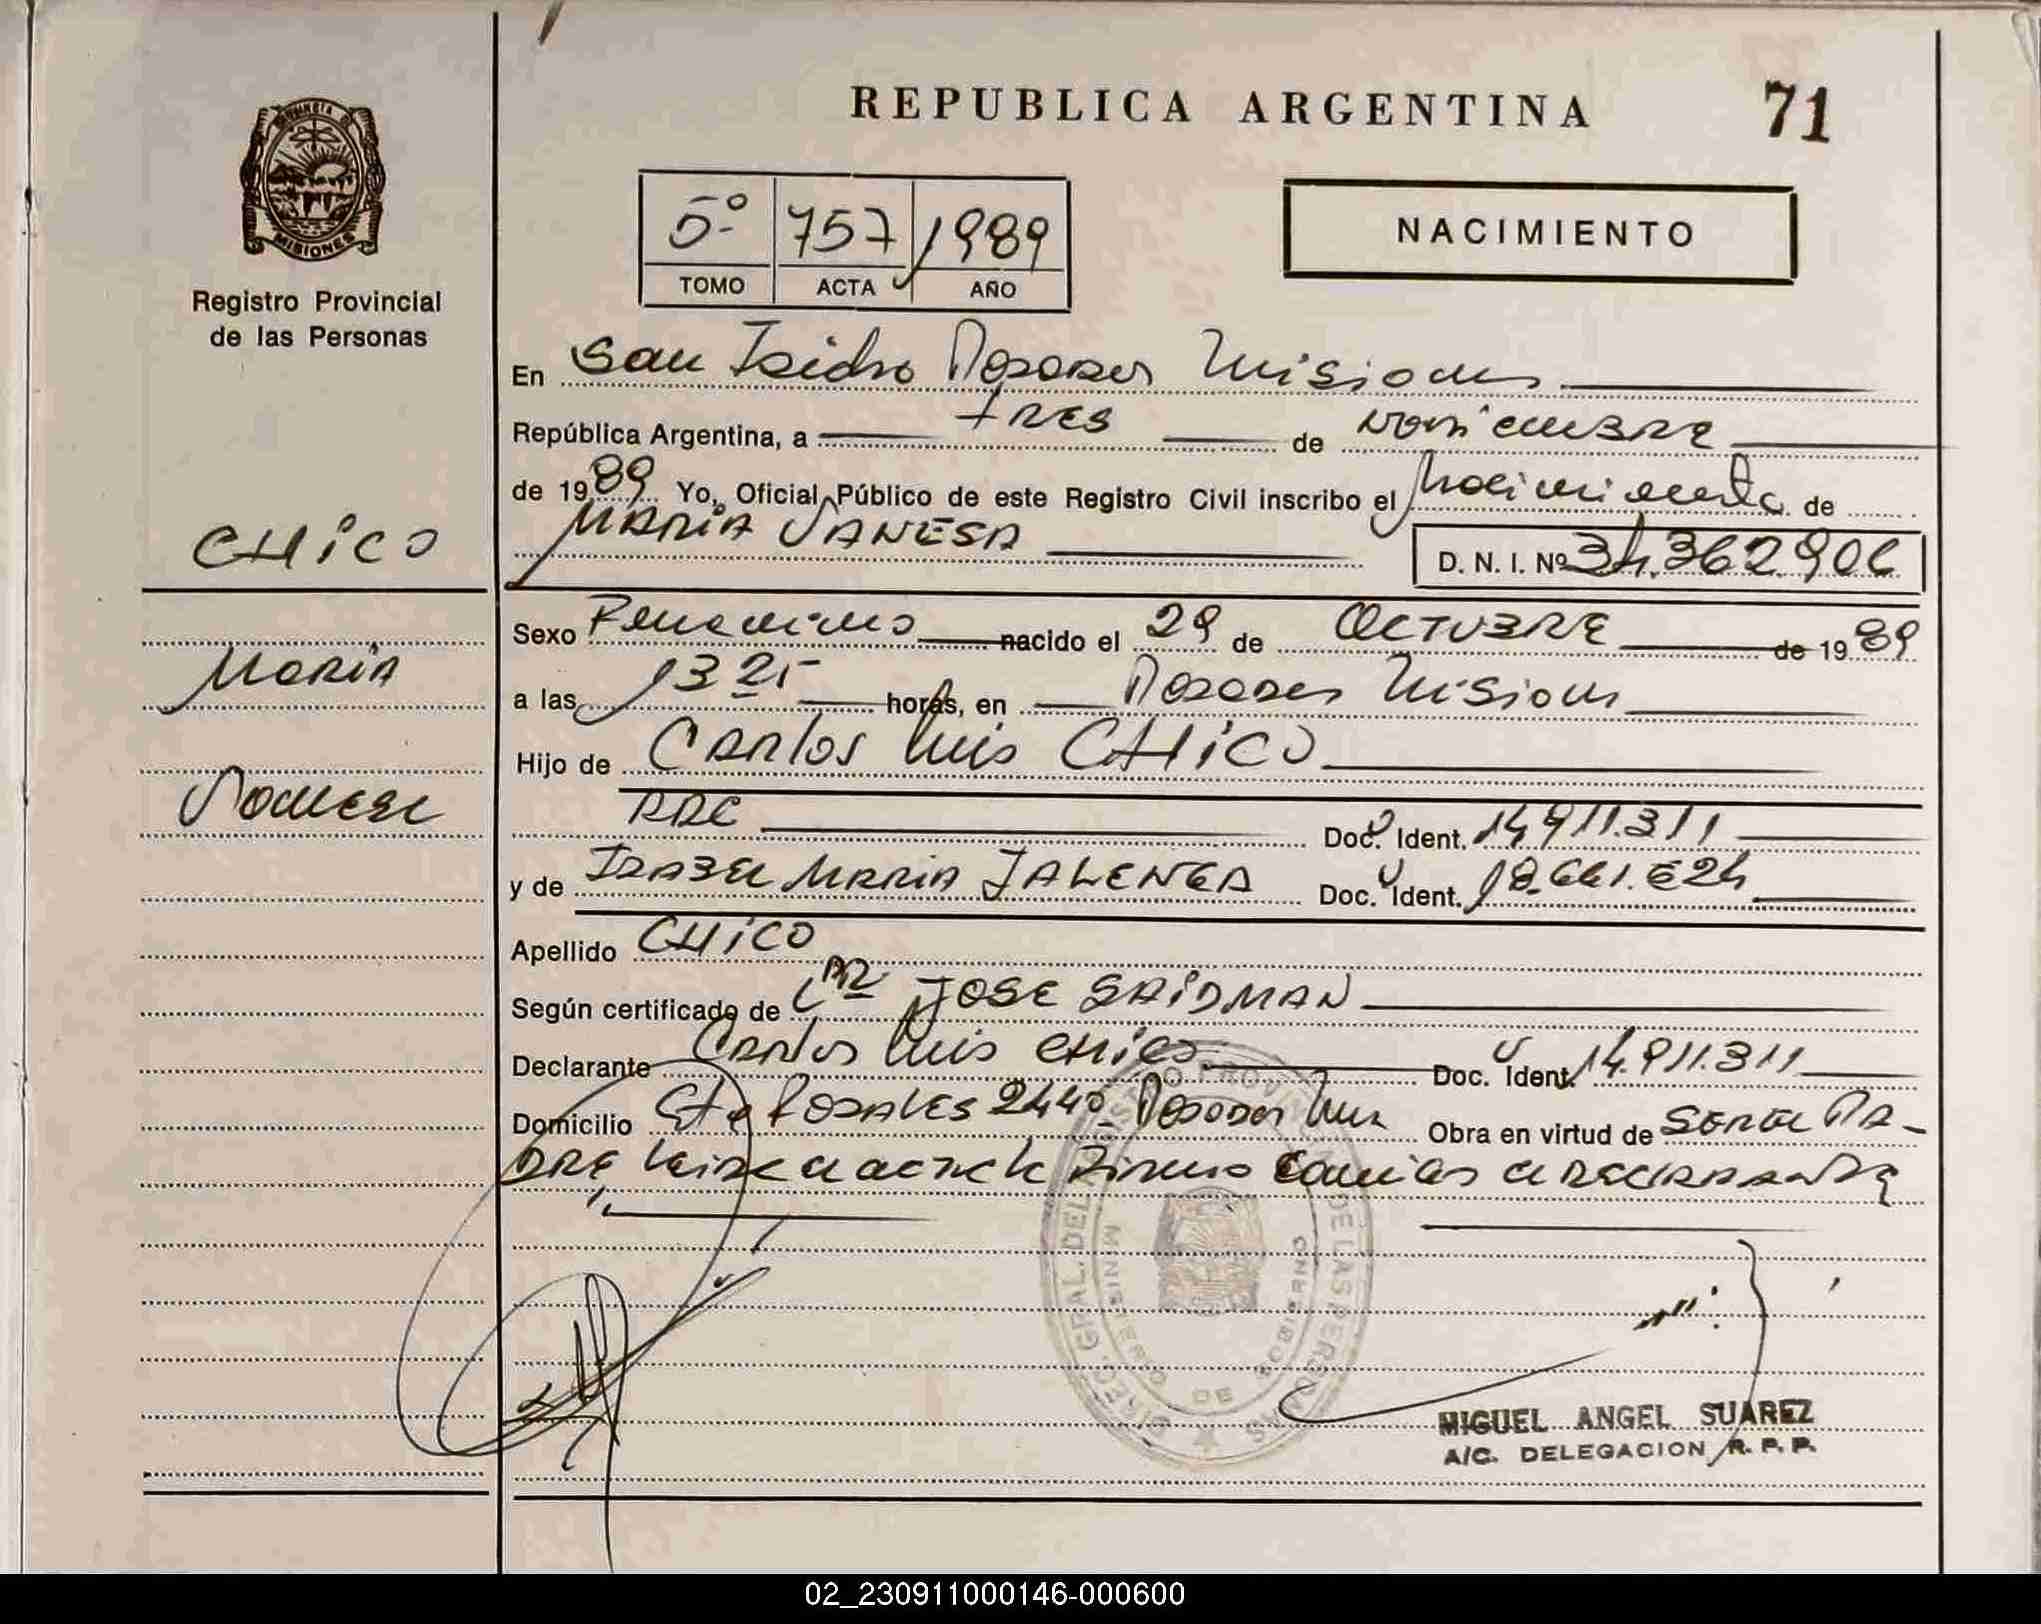 REPUBLICA ARGENTINA
71
PROVINCIA DE
MISIONES
Registro Provincial
de las Personas
5º 757 1989
TOMO ACTA AÑO
NACIMIENTO
En San Isidro Posadas Misiones
República Argentina, a tres de Noviembre
de 1989 Yo, Oficial Público de este Registro Civil inscribo el Nacimiento de
MARIA VANESA
D. N. I. Nº 34.362.906
CHICO
Sexo Femenino nacido el 29 de OCTUBRE de 1989
Maria
a las 13 25 horas, en Posadas Misiones
Hijo de Carlos Luis CHICO
Vanesa
Doc. Ident. 14.911.311
y de ISABEL MARIA Doc. Ident.
Apellido CHICO
Según certificado de JOSE SAIDMAN
Declarante Carlos Luis CHICO Doc. Ident. 14.911.311
Domicilio ROSALES 2440 Posadas Mnes Obra en virtud de SER EL PA-
DRE Leida el acta la Firma el DECLARANTE
DIREC. GRAL. DEL REGISTRO PROVINCIAL DE LAS PERSONAS
MINISTERIO DE GOBIERNO
MIGUEL ANGEL SUAREZ
A/C. DELEGACION R. P. P.
02_230911000146-000600